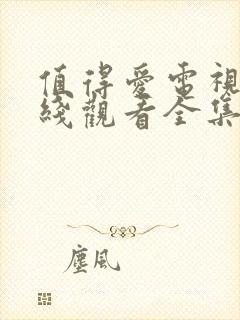 值得愛電視
綫觀看全集
塵風